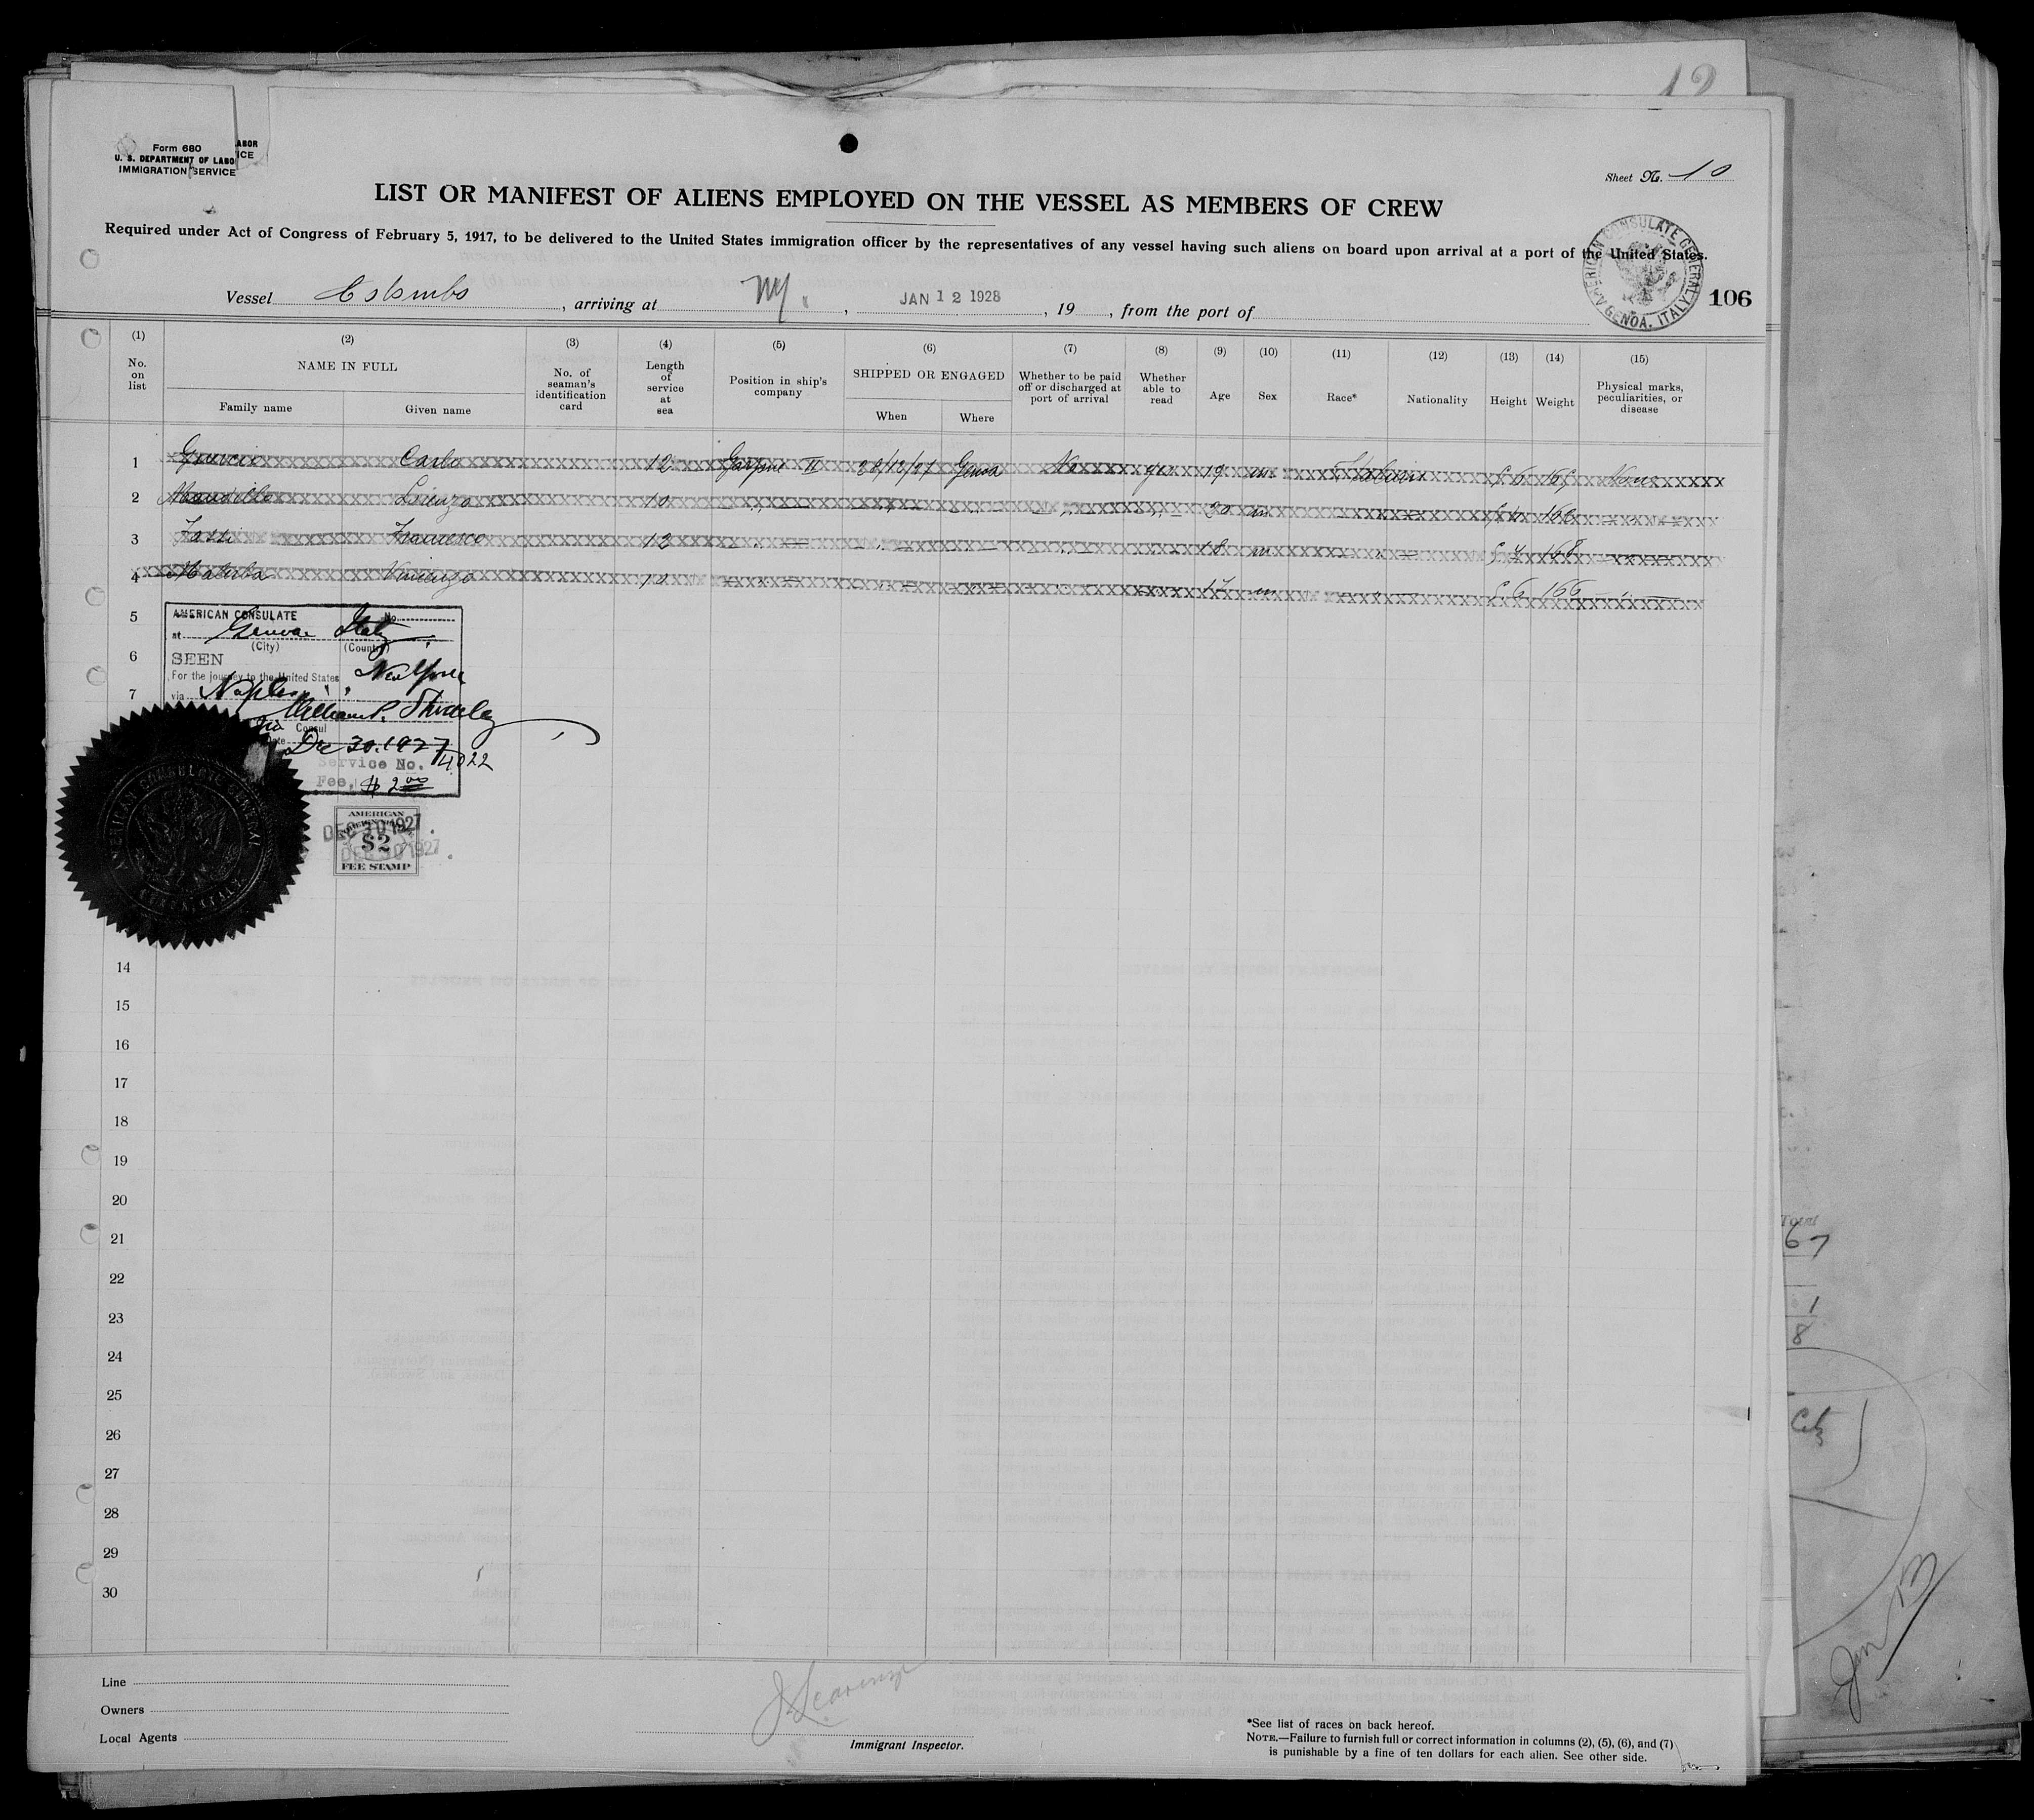 12
Form 680
U. S. DEPARTMENT OF LABO
IMMIGRATION SERVICE
ABOR
ICE
Sheet No. 10
LIST OR MANIFEST OF ALIENS EMPLOYED ON THE VESSEL AS MEMBERS OF CREW
Required under Act of Congress of February 5, 1917, to be delivered to the United States immigration officer by the representatives of any vessel having such aliens on board upon arrival at a port of the United States.
AMERICAN CONSULATE GENERAL GENOA, ITALY
Vessel Colombo, arriving at NY., JAN 12 1928, 19 , from the port of
106
(1) (2) (3) (4) (5) (6) (7) (8) (9) (10) (11) (12) (13) (14) (15)
No. on list
NAME IN FULL
Family name Given name
No. of seaman's identification card
Length of service at sea
Position in ship's company
SHIPPED OR ENGAGED
When Where
Whether to be paid off or discharged at port of arrival
Whether able to read
Age Sex Race* Nationality Height Weight
Physical marks, peculiarities, or disease
1 Carlo 12 II Genoa No 19 m Italian 5 6
2 Lorenzo 10 20 m
3 Francesco 12 18 m 168
4 Vincenzo 10 17 m 5 6 166
5
6
7
AMERICAN CONSULATE No.
at Genoa Italy
(City) (Country)
SEEN
For the journey to the United States New York
via Naples
William P.
Consul
Date Dec 30. 1927
Service No. 4022
Fee, $ 2 00
AMERICAN
$2
FEE STAMP
DEC 30 1927
DEC 30 1927
AMERICAN CONSULATE GENERAL
GENOA, ITALY
14
15
16
17
18
19
20
21
22
23
24
25
26
27
28
29
30
Total
67
1
8
Jan 13
Line
Owners
Local Agents
Immigrant Inspector.
*See list of races on back hereof.
NOTE.—Failure to furnish full or correct information in columns (2), (5), (6), and (7)
is punishable by a fine of ten dollars for each alien. See other side.